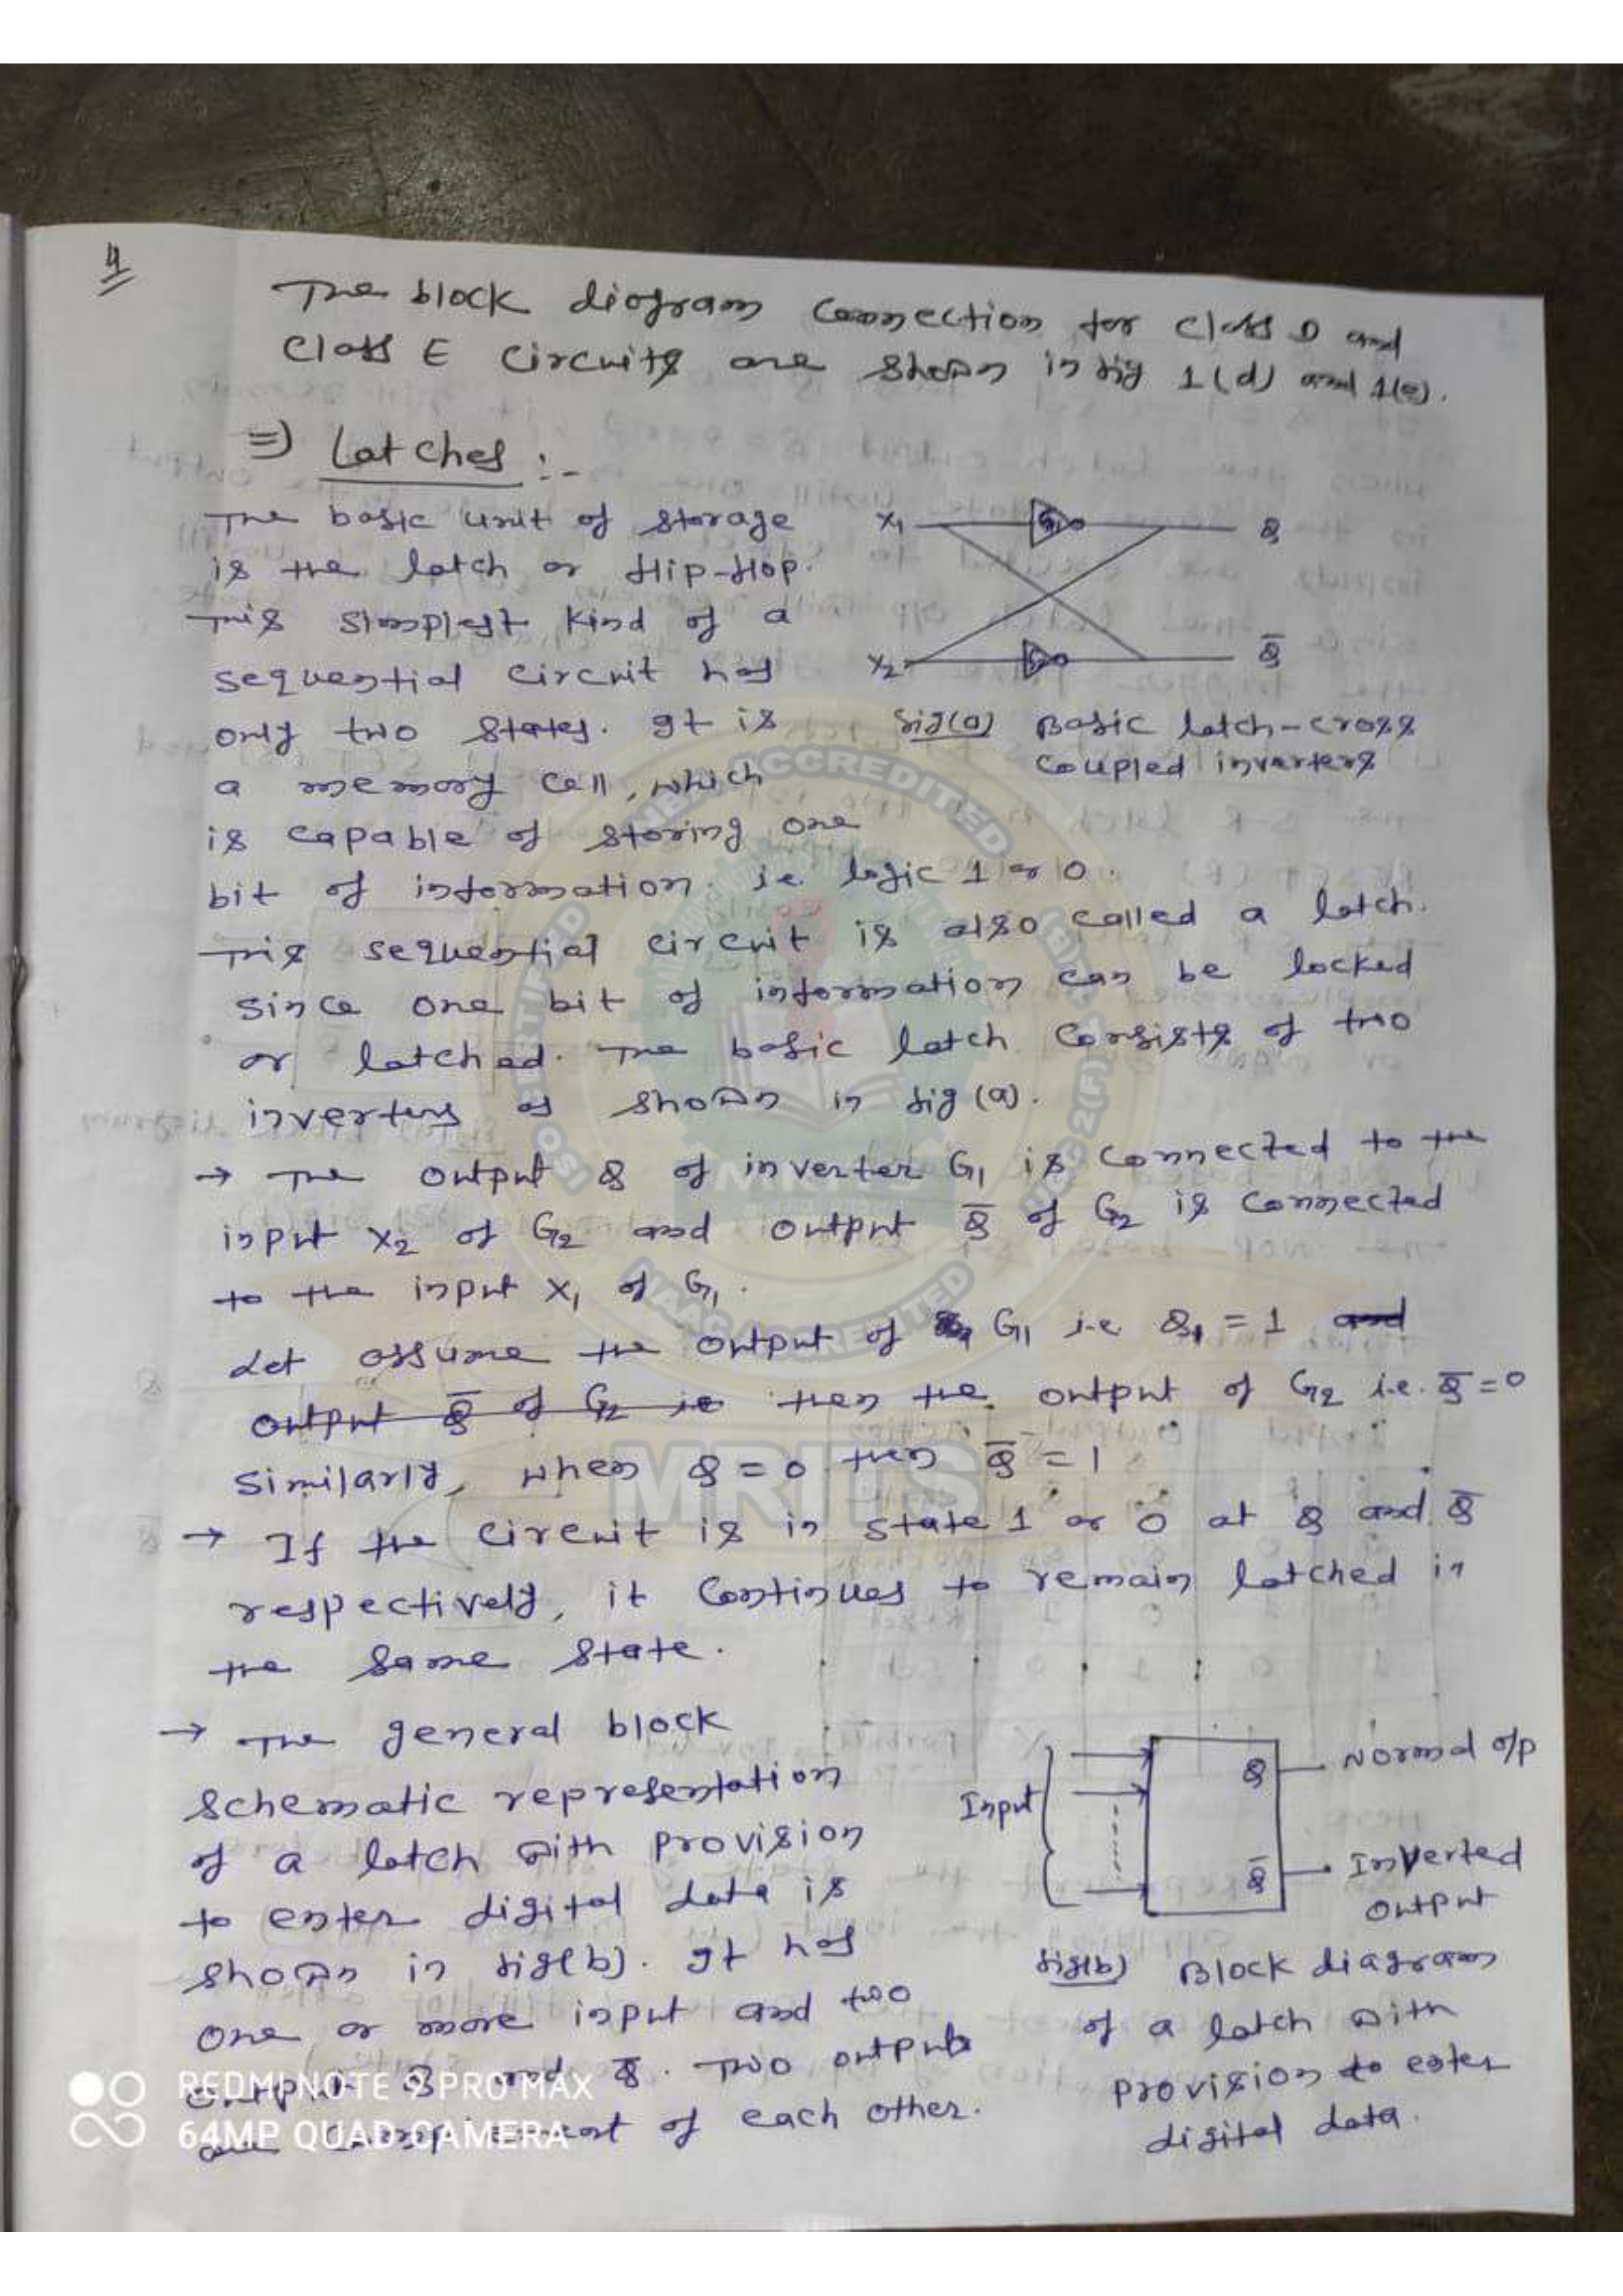 4
The block diagram connection for class D and
class E circuits are shown in fig 1(d) and 1(e).
⇒ Latches :-
The basic unit of storage
is the latch or flip-flop.
This simplest kind of a
sequential circuit has
only two states. It is
a memory cell, which
is capable of storing one
bit of information. i.e. logic 1 or 0.
X1 G1 Q
X2 G2 Q̅
fig(a) Basic latch-cross
coupled inverters
This sequential circuit is also called a latch.
Since one bit of information can be locked
or latched. The basic latch consists of two
inverters as shown in fig (a).
→ The output Q of inverter G1 is connected to the
input X2 of G2 and output Q̅ of G2 is connected
to the input X1 of G1.
Let assume the output of G1 i.e. Q1 = 1 and
output Q̅ of G2 is then the output of G2 i.e. Q̅ = 0
Similarly, when Q = 0 then Q̅ = 1
→ If the circuit is in state 1 or 0 at Q and Q̅
respectively, it continues to remain latched in
the same state.
→ The general block
schematic representation
of a latch with provision
to enter digital data is
shown in fig(b). It has
one or more input and two
output Q and Q̅. Two outputs
are complement of each other.
Input
Q Normal o/p
Q̅ Inverted
output
fig(b) Block diagram
of a latch with
provision to enter
digital data.
ISO CERTIFIED
NBA ACCREDITED
UGC 2(f) & 12(B)
NAAC ACCREDITED
MRITS
REDMI NOTE 9 PRO MAX
64MP QUAD CAMERA